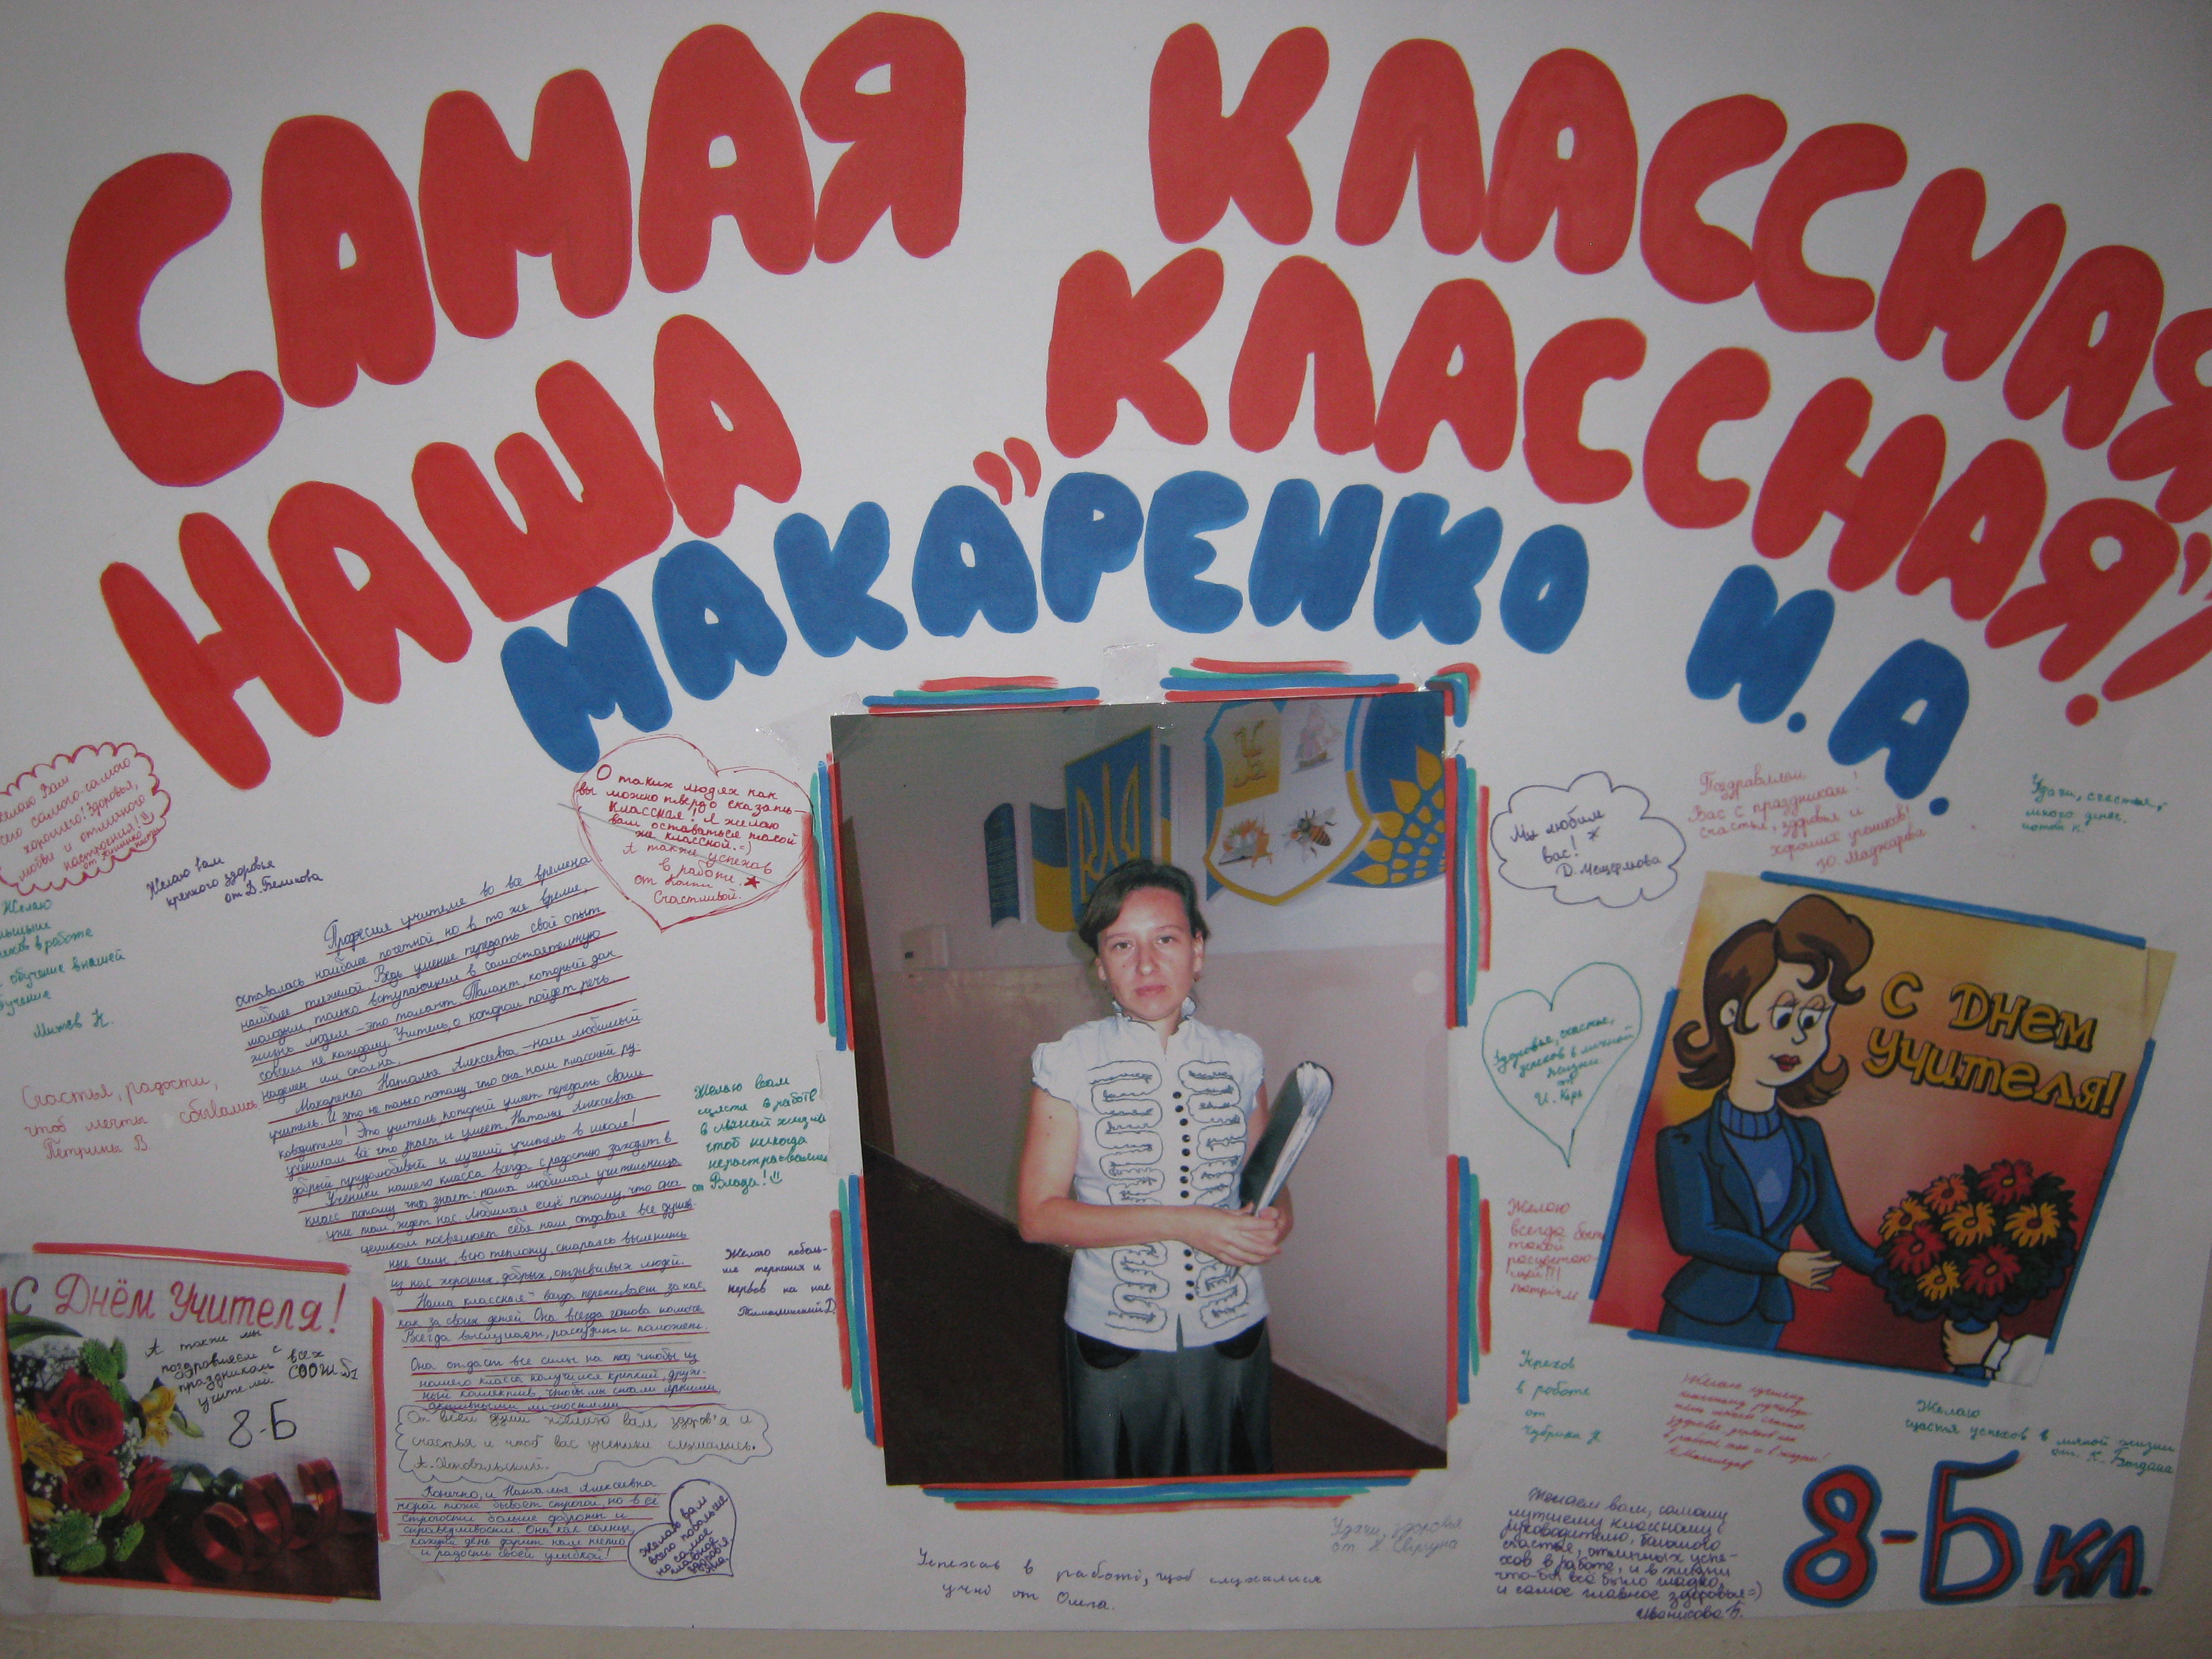 САМАЯ КЛАССНАЯ
НАША "КЛАССНАЯ"!
МАКАРЕНКО Н.А.
всего самого-самого
хорошего! Здоровья,
любви и отличного
настроения!
Желаю вам
крепкого здоровья
от Д. Беликова
Желаю
в работе
обучение в нашей
Митев К.
Счастья, радости,
чтоб мечты сбывались
Петрина В
О таких людях как
вы можно твердо сказать-
Классная! Я желаю
вам оставаться такой
же классной.=)
А также успехов
в работе.
от
Счастливой.
Професия учителя во все времена
оставалась наиболее почетной, но в то же время,
наиболее тяжелой. Ведь умение передать свой опыт
молодым, только вступающим в самостоятельную
жизнь людям - это талант. Талант, который дан
совсем не каждому. Учитель, о котором пойдет речь
наделен им сполна.
Макаренко Наталья Алексеевна - наш любимый
учитель. И это не только потому что она наш классный ру-
ководитель! Это учитель, который умеет передать своим
ученикам всё что знает и умеет. Наталья Алексеевна
добрый трудолюбивый и лучший учитель в школе!
Ученики нашего класса всегда с радостью заходят в
класс потому что знает: наша любимая учительница
уже там, ждет нас. Любимая ещё потому, что она
целиком посвящает себя нам отдавая все душев-
ные силы, всю теплоту, стараясь вылепить
из нас хороших, добрых, отзывчивых людей.
"Наша классная" всегда переживает за нас,
как за своих детей. Она всегда готова помочь
Всегда выслушает, рассудит и поможет.
Она отдаст все силы на то, чтобы из
нашего класса получился крепкий, друж-
ный коллектив, чтобы мы стали яркими,
активными личностями
От всей души желаю вам здоров'я и
счастья и чтоб вас ученики слушались.
Конечно, и Наталья Алексеевна
порой тоже бывает строгой, но в её
строгости больше доброты и
справедливости. Она как солнце
каждый день дарит нам тепло
и радость своей улыбкой!
Желаю вам
всего побольше
но самое
главное
здоров'я
Желаю вам
щастя в работе
в личной жизни
чтоб никогда
нерастраевались
от Влада!
Желаю поболь-
ше терпения и
нервов на нас
С Днём Учителя!
А также мы
поздравляем с
праздником всех
учителей СООШ №1
8-Б
Мы любим
вас! *
Д. Мещерякова
Поздравляем
Вас с праздником!
счастья, здоровья и
хороших учеников!
Ю. Маджарова
Удачи, счастья,
много денег.
Здоровья, счастье,
успехов в личной
жизни
от
И. Кара
С Днем
учителя!
Желаю
всегда быть
такой
расцветаю-
щей!!!
Успехов
в работе
от
Желаю лучшему
Желаю
щастя успехов в личной жизни
от К. Богдана
Успехав в работі, щоб слухалися
учні от Олега.
Удачи, здоровья
Желаем вам, самому
лучшему классному
руководителю, большого
счастья, отличных успе-
хов в работе, и в жизни
что-бы всё было гладко,
и самое главное здоровья=)
Иванисова Б.
8-Б кл.